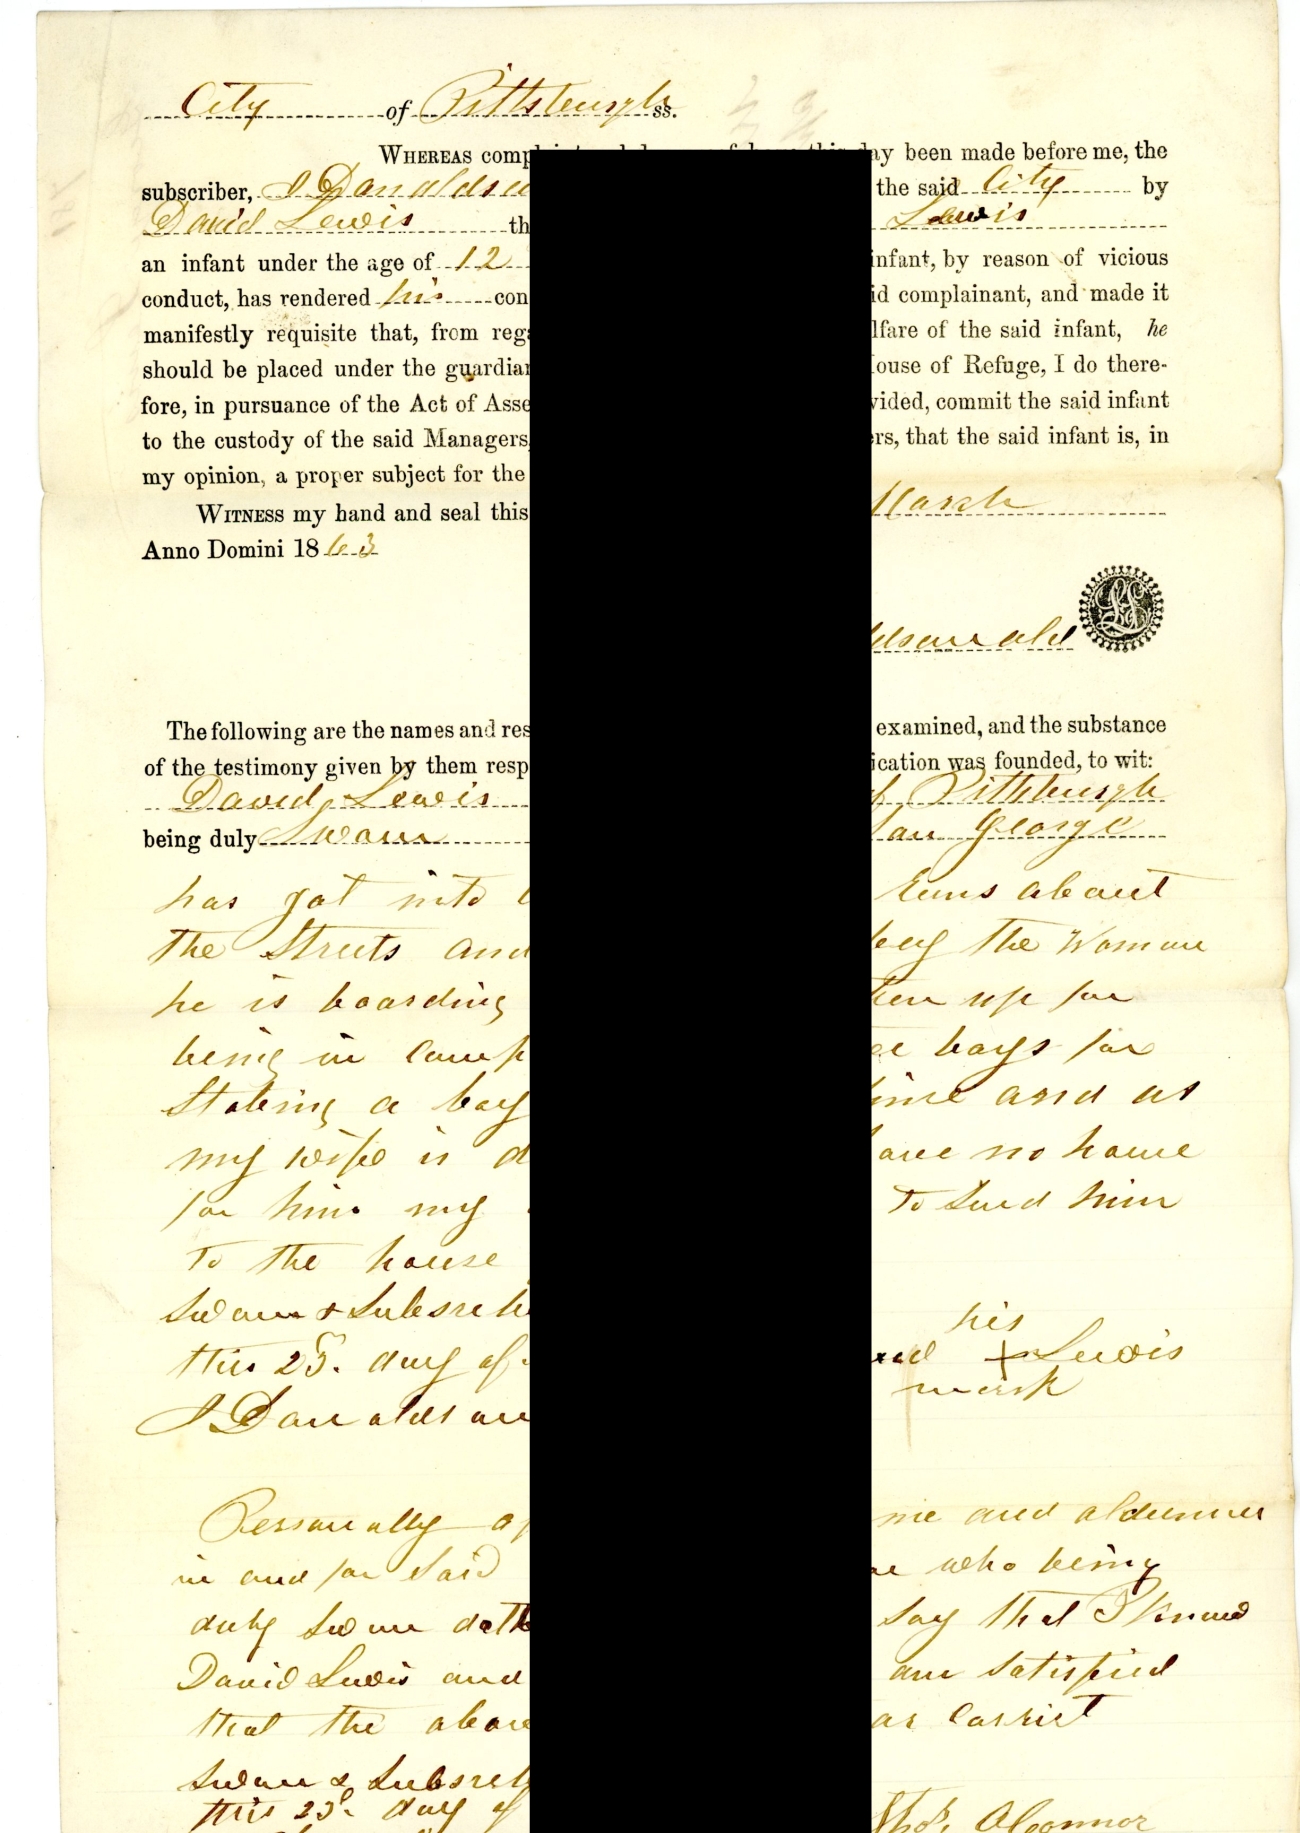 City of Pittsburgh ss.
WHEREAS comp day been made before me, the
subscriber, J Donaldson the said City by
David Lewis th Lewis
an infant under the age of 12 infant, by reason of vicious
conduct, has rendered his con id complainant, and made it
manifestly requisite that, from reg lfare of the said infant, he
should be placed under the guardian ouse of Refuge, I do there-
fore, in pursuance of the Act of Asse vided, commit the said infant
to the custody of the said Managers, ers, that the said infant is, in
my opinion, a proper subject for the
WITNESS my hand and seal this March
Anno Domini 1863
ldson ald
LS
The following are the names and res examined, and the substance
of the testimony given by them resp ication was founded, to wit:
David Lewis of Pittsburgh
being duly Sworn George
has got into runs about
the Streets and the Woman
he is boarding up for
being in comp boys for
Stabing a boy time and as
my wife is d have no home
for him my to Send him
to the house
Sworn & Subscrib his
this 25. day of Lewis
J Donaldson mark
Personally ap me and alderman
in and for Said who being
duly Sworn doth Say that I know
David Lewis and am Satisfied
that the above ar Correct
Sworn & Subscrib
this 25. day of Thos. OConnor